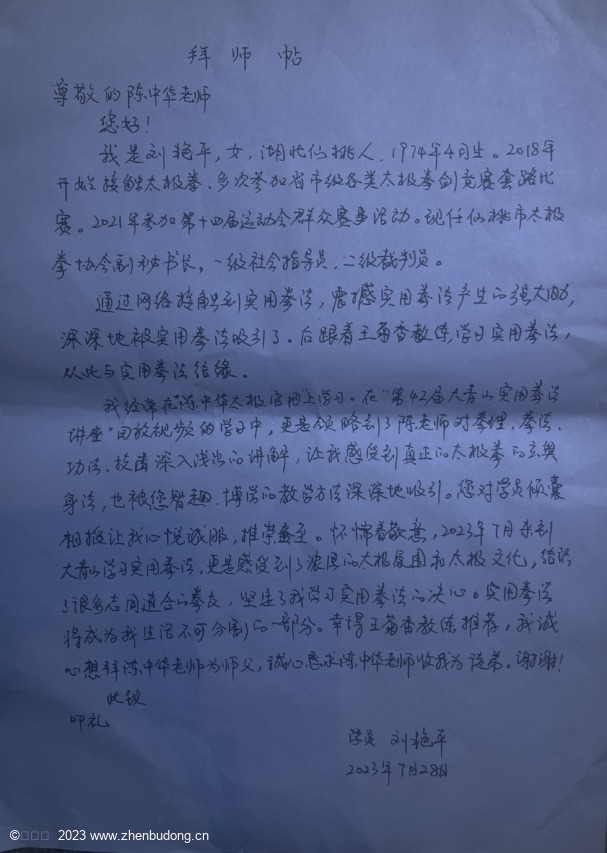 拜师帖
尊敬的陈中华老师
您好！
我是刘艳平，女，湖北仙桃人，1974年4月生。2018年
开始接触太极拳，多次参加省市级各类太极拳剑竞赛套路比
赛。2021年参加第十四届运动会群众赛事活动。现任仙桃市太极
拳协会副秘书长，一级社会指导员，二级裁判员。
通过网络接触到实用拳法，震撼实用拳法产生的强大威力，
深深地被实用拳法吸引了。后跟着王菊香教练学习实用拳法，
从此与实用拳法结缘。
我经常在"陈中华太极官网上学习。在"第42届大青山实用拳法
讲座"回放视频的学习中，更是领略到了陈老师对拳理、拳法、
功法、技击深入浅出的讲解，让我感受到真正的太极拳的玄奥
身法，也被您智趣、博学的教学方法深深地吸引。您对学员倾囊
相授让我心悦诚服，推崇备至。怀惴着敬意，2023年7月来到
大青山学习实用拳法，更是感受到了浓厚的太极氛围和太极文化，结识
了很多志同道合的拳友，坚定了我学习实用拳法的决心。实用拳法
将成为我生活不可分割的一部分。幸得王菊香教练推荐，我诚
心想拜陈中华老师为师父，诚心恳求陈中华老师收我为徒弟。谢谢！
此致
叩礼
学员 刘艳平
2023年7月28日
© 2023 www.zhenbudong.cn